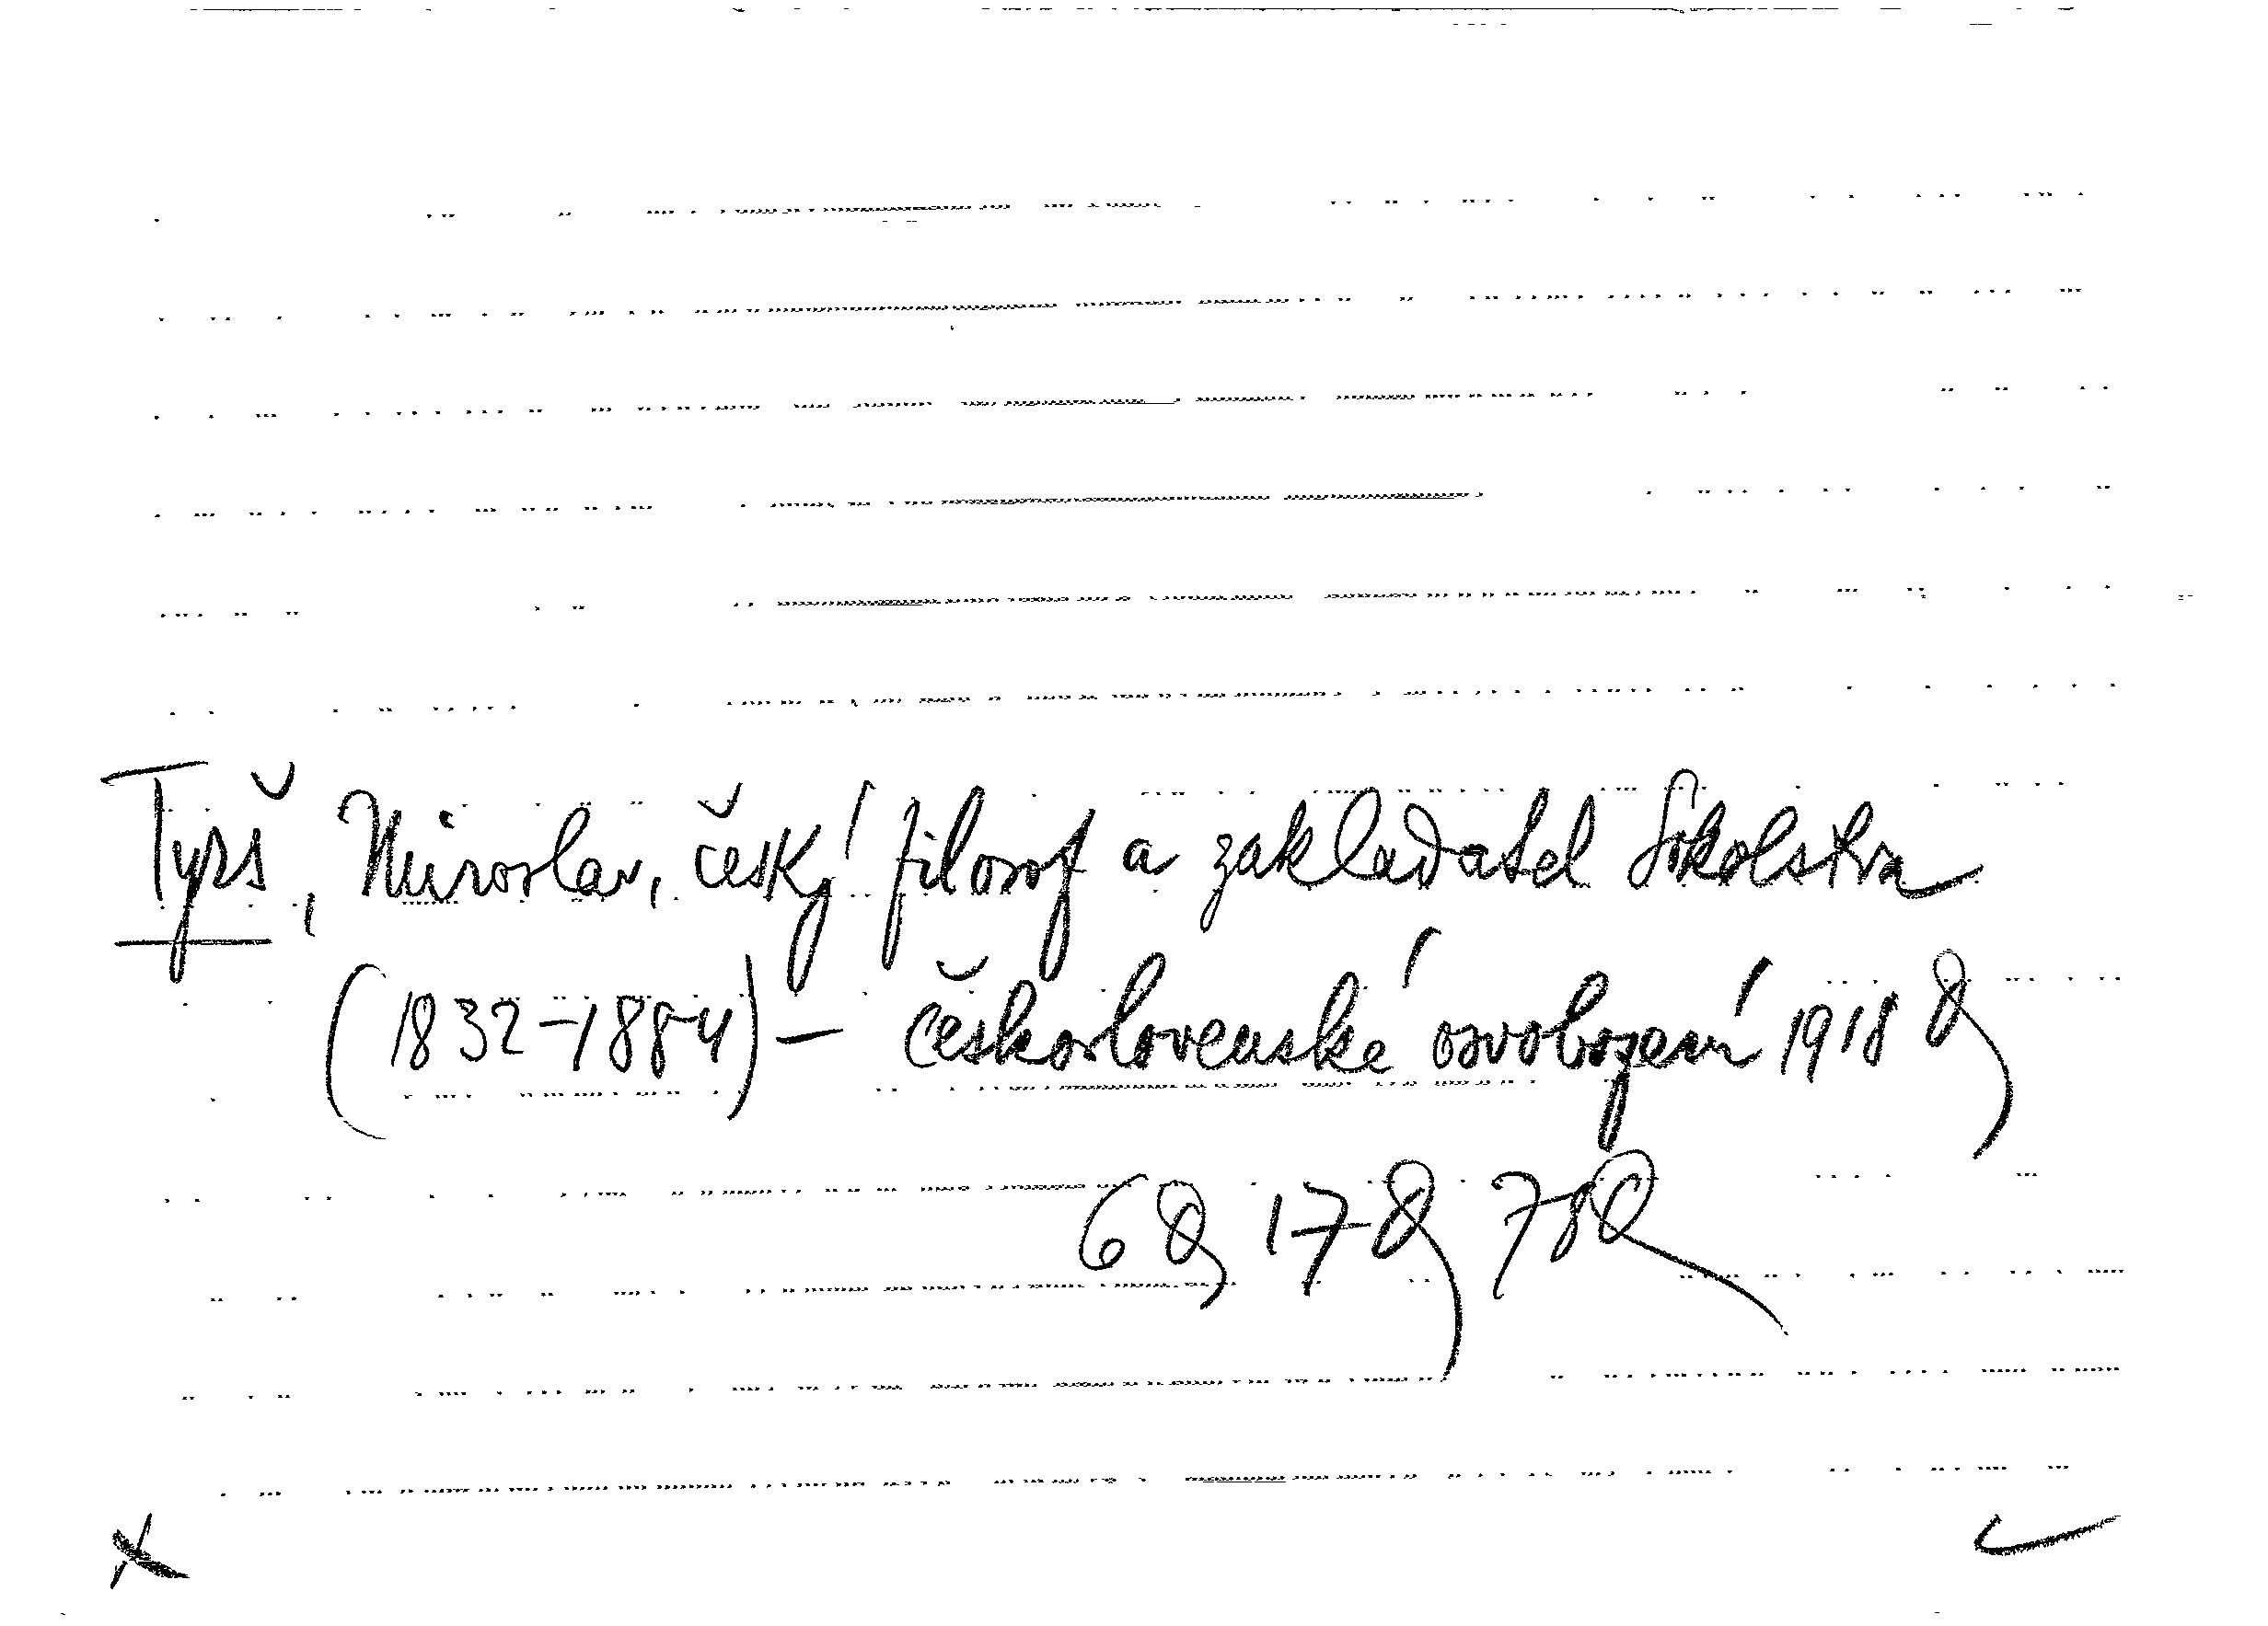 Tyrš, Miroslav, český filosof a zakladatel Sokolstva
(1832-1884) – československé osvobození 1918
6 17 78